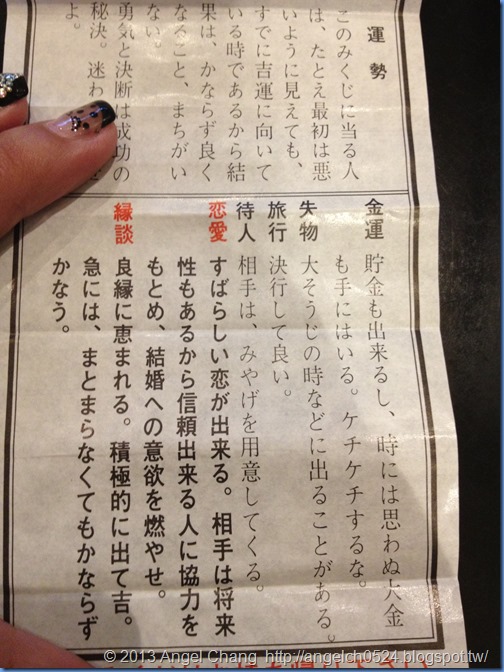 運勢
このみくじに当る人
は、たとえ最初は悪
いように見えても、
すでに吉運に向いて
いる時であるから結
果は、かならず良く
なること、まちがい
ない。
勇気と決断は成功の
秘決。迷わ
よ。
金運 貯金も出来るし、時には思わぬ大金
も手にはいる。ケチケチするな。
失物 大そうじの時などに出ることがある。
旅行 決行して良い。
待人 相手は、みやげを用意してくる。
恋愛 すばらしい恋が出来る。相手は将来
性もあるから信頼出来る人に協力を
もとめ、結婚への意欲を燃やせ。
縁談 良縁に恵まれる。積極的に出て吉。
急には、まとまらなくてもかならず
かなう。
© 2013 Angel Chang http://angelch0524.blogspot.tw/